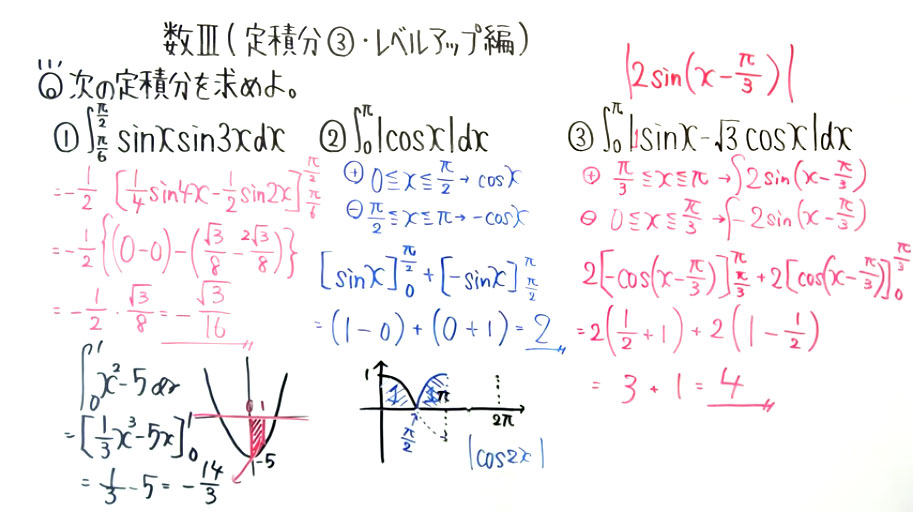 数Ⅲ(定積分③・レベルアップ編)
問 次の定積分を求めよ。
|2sin(x-π/3)|
① ∫_{π/6}^{π/2} sinxsin3xdx
=-1/2 [1/4 sin4x-1/2 sin2x]_{π/6}^{π/2}
=-1/2{(0-0)-(√3/8-2√3/8)}
=-1/2・√3/8=-√3/16
∫_0^1 x²-5 dx
=[1/3x³-5x]_0^1
=1/3-5=-14/3
1
-5
② ∫_0^π |cosx|dx
⊕ 0≦x≦π/2→cosx
⊖ π/2≦x≦π→-cosx
[sinx]_0^{π/2}+[-sinx]_{π/2}^π
=(1-0)+(0+1)=2
1
1
1
π
π/2
2π
|cos2x|
③ ∫_0^π |1sinx-√3cosx|dx
⊕ π/3≦x≦π→∫2sin(x-π/3)
⊖ 0≦x≦π/3→∫-2sin(x-π/3)
2[-cos(x-π/3)]_{π/3}^π+2[cos(x-π/3)]_0^{π/3}
=2(1/2+1)+2(1-1/2)
=3+1=4